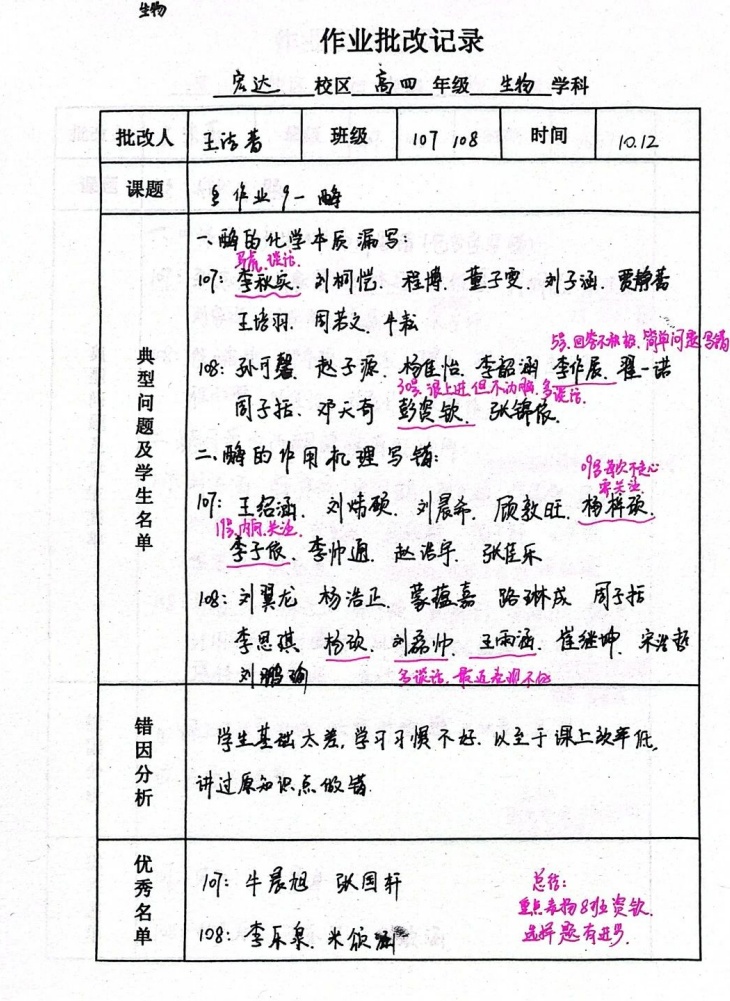 生物
作业批改记录
宏达 校区 高四 年级 生物 学科
批改人 王洁 班级 107 108 时间 10.12
课题 作业9一酶
典型问题及学生名单
一、酶的化学本质漏写:
马虎、谈话
107: 李秋实、刘柯恺、程博、董子雯、刘子涵、贾静
王培羽、周若文、牛
5号、回答不积极、简单问题写错
108: 孙可馨 赵子源、杨佳怡、李韶涵、李作辰、翟一诺
30号、很上进但不动脑、多谈话
周子括、邓天奇 彭资钦、张锦依
二、酶的作用机理写错:
09号每次不走心
需关注
107: 王绍涵、刘炜硕、刘晨希、顾敦旺、杨梓硕、
11号、内向、关注
李子依、李帅通、赵浩宇、张佳乐
108: 刘翼龙 杨浩正、蒙蕴嘉 路琳成 周子括
李思琪 杨欣、刘磊帅、王雨涵、崔继坤、宋浩哲
刘鹏瑜
多谈话、最近表现不好
错因分析
学生基础太差,学习习惯不好、以至于课上效率低,
讲过原知识点做错
优秀名单
107: 牛晨旭 张国轩
108: 李乐泉、米颂
总结:
重点表扬8班资钦、
选择题有进步、